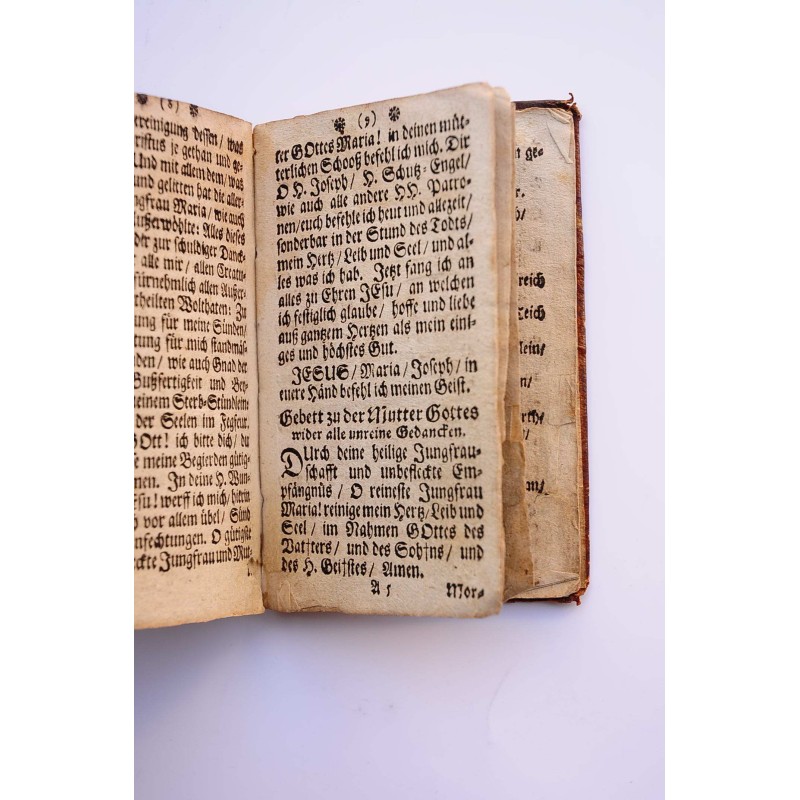 ❋ (8) ❋
ereinigung dessen/ was
ristus je gethan und ge-
Und mit allem dem/ was
und gelitten hat die aller-
ngfrau Maria/ wie auch
Außerwöhlte: Alles dieses
dir zur schuldiger Danck-
alle mir/ allen Creatu-
fürnehmlich allen Außer-
theilten Wolthaten: Zu
ung für meine Sünden/
tung für mich standmäs-
den/ wie auch Gnad der
Bußfertigkeit und Bey-
einem Sterb-Stündlein-
der Seelen im Fegfeur.
GOtt! ich bitte dich/ du
e meine Begierden gütig-
men. In deine H. Wun-
Esu! werff ich mich/ hierin
h vor allem übel/ Sünd
nfechtungen. O gütigste
ckte Jungfrau und Mut-
❋ (9) ❋
ter GOttes Maria! in deinen müt-
terlichen Schooß befehl ich mich. Dir
O H. Joseph/ H. Schutz-Engel/
wie auch alle andere HH. Patro-
nen/ euch befehle ich heut und allezeit/
sonderbar in der Stund des Todts/
mein Hertz/ Leib und Seel/ und al-
les was ich hab. Jetzt fang ich an
alles zu Ehren JEsu/ an welchen
ich festiglich glaube/ hoffe und liebe
auß gantzem Hertzen als mein eini-
ges und höchstes Gut.
JESUS/ Maria/ Joseph/ in
euere Händ befehl ich meinen Geist.
Gebett zu der Mutter Gottes
wider alle unreine Gedancken.
DUrch deine heilige Jungfrau-
schafft und unbefleckte Em-
pfängnüs/ O reineste Jungfrau
Maria! reinige mein Hertz/ Leib und
Seel/ im Nahmen GOttes des
Vat†ters/ und des Soh†ns/ und
des H. Gei†stes/ Amen.
A 5 Mor-
n ge-
r.
b/
reich
Reich
lein/
n/
rth/
m/